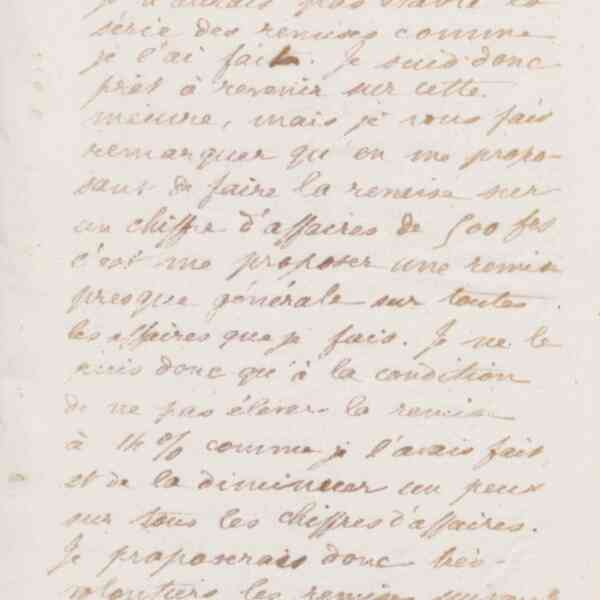 je n'aurais pas établi la
série des remises comme
je l'ai fait. Je suis donc
prêt à revenir sur cette
mesure, mais je vous fais
remarquer qu'en me propo-
sant de faire la remise sur
un chiffre d'affaires de 500 frs
c'est me proposer une remise
presque générale sur toutes
les affaires que je fais. Je ne le
puis donc qu'à la condition
de ne pas élever la remise
à 14% comme je l'avais fait
et de la diminuer un peu
sur tous les chiffres d'affaires.
Je proposerais donc très-
volontiers les remises suivant